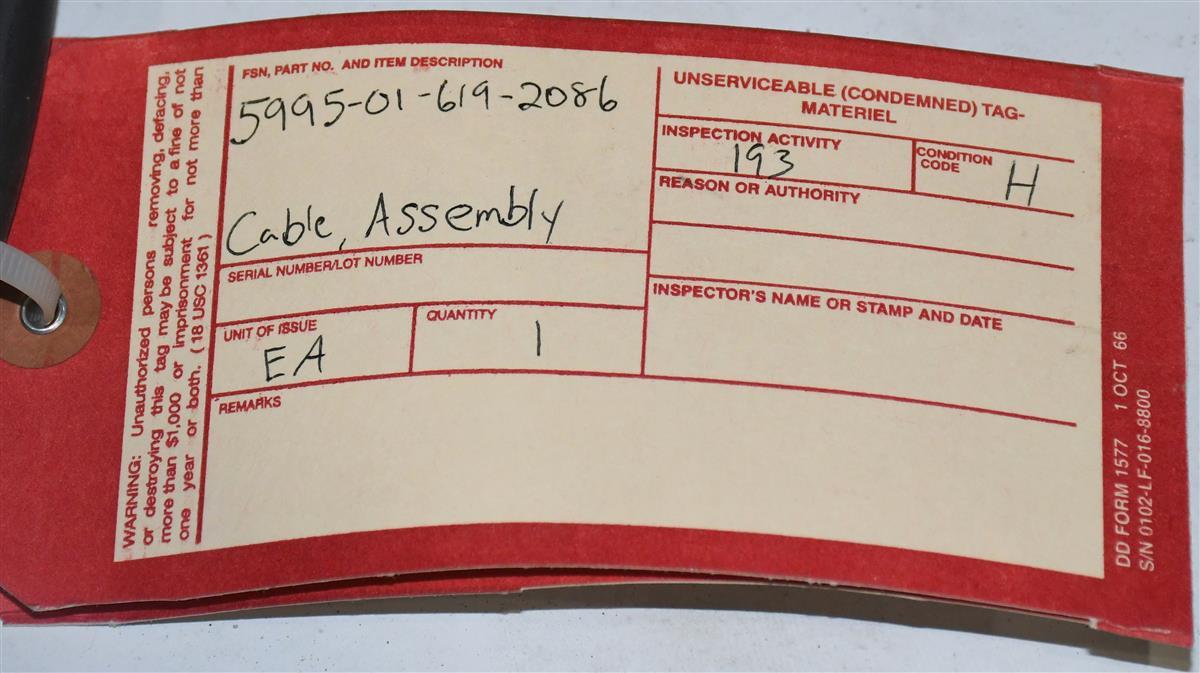 WARNING: Unauthorized persons removing, defacing,
or destroying this tag may be subject to a fine of not
more than $1,000 or imprisonment for not more than
one year or both. (18 USC 1361)
FSN, PART NO. AND ITEM DESCRIPTION
5995-01-619-2086
Cable, Assembly
SERIAL NUMBER/LOT NUMBER
UNIT OF ISSUE
EA
QUANTITY
1
REMARKS
UNSERVICEABLE (CONDEMNED) TAG-
MATERIEL
INSPECTION ACTIVITY
193
CONDITION
CODE
H
REASON OR AUTHORITY
INSPECTOR'S NAME OR STAMP AND DATE
DD FORM 1577 1 OCT 66
S/N 0102-LF-016-8800